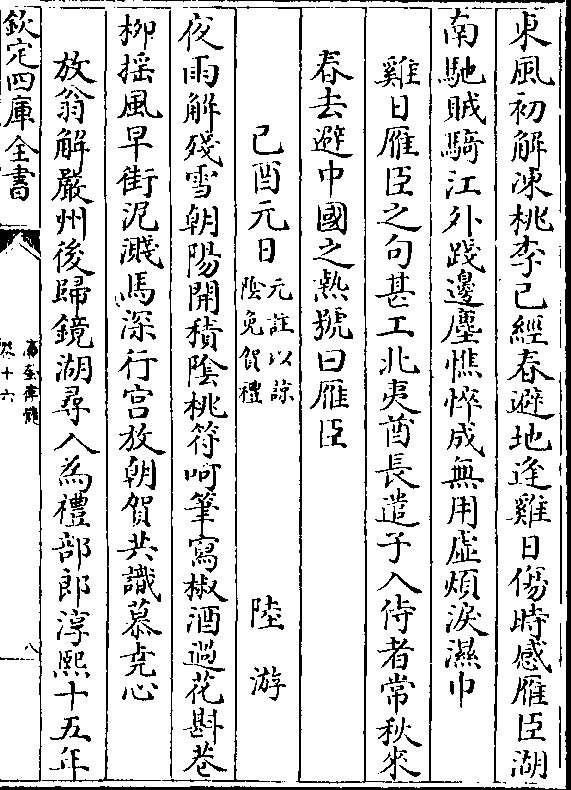 東風初解凍桃李已經春避地逢雞日傷時感雁臣湖
南馳賊騎江外踐邊塵憔悴成無用虛煩淚濕巾
雞日雁臣之句甚工北夷酋長遣子入侍者常秋來
春去避中國之熱號曰雁臣
己酉元日 元註以諒
陰免賀禮 陸游
夜雨解殘雪朝陽開積陰桃符呵筆寫椒酒過花斟巷
柳揺風早街泥濺馬深行宫放朝賀共識慕堯心
放翁解嚴州後歸鏡湖尋入為禮部郎淳熙十五年
欽定四庫全書
瀛奎律髓
卷十六
八